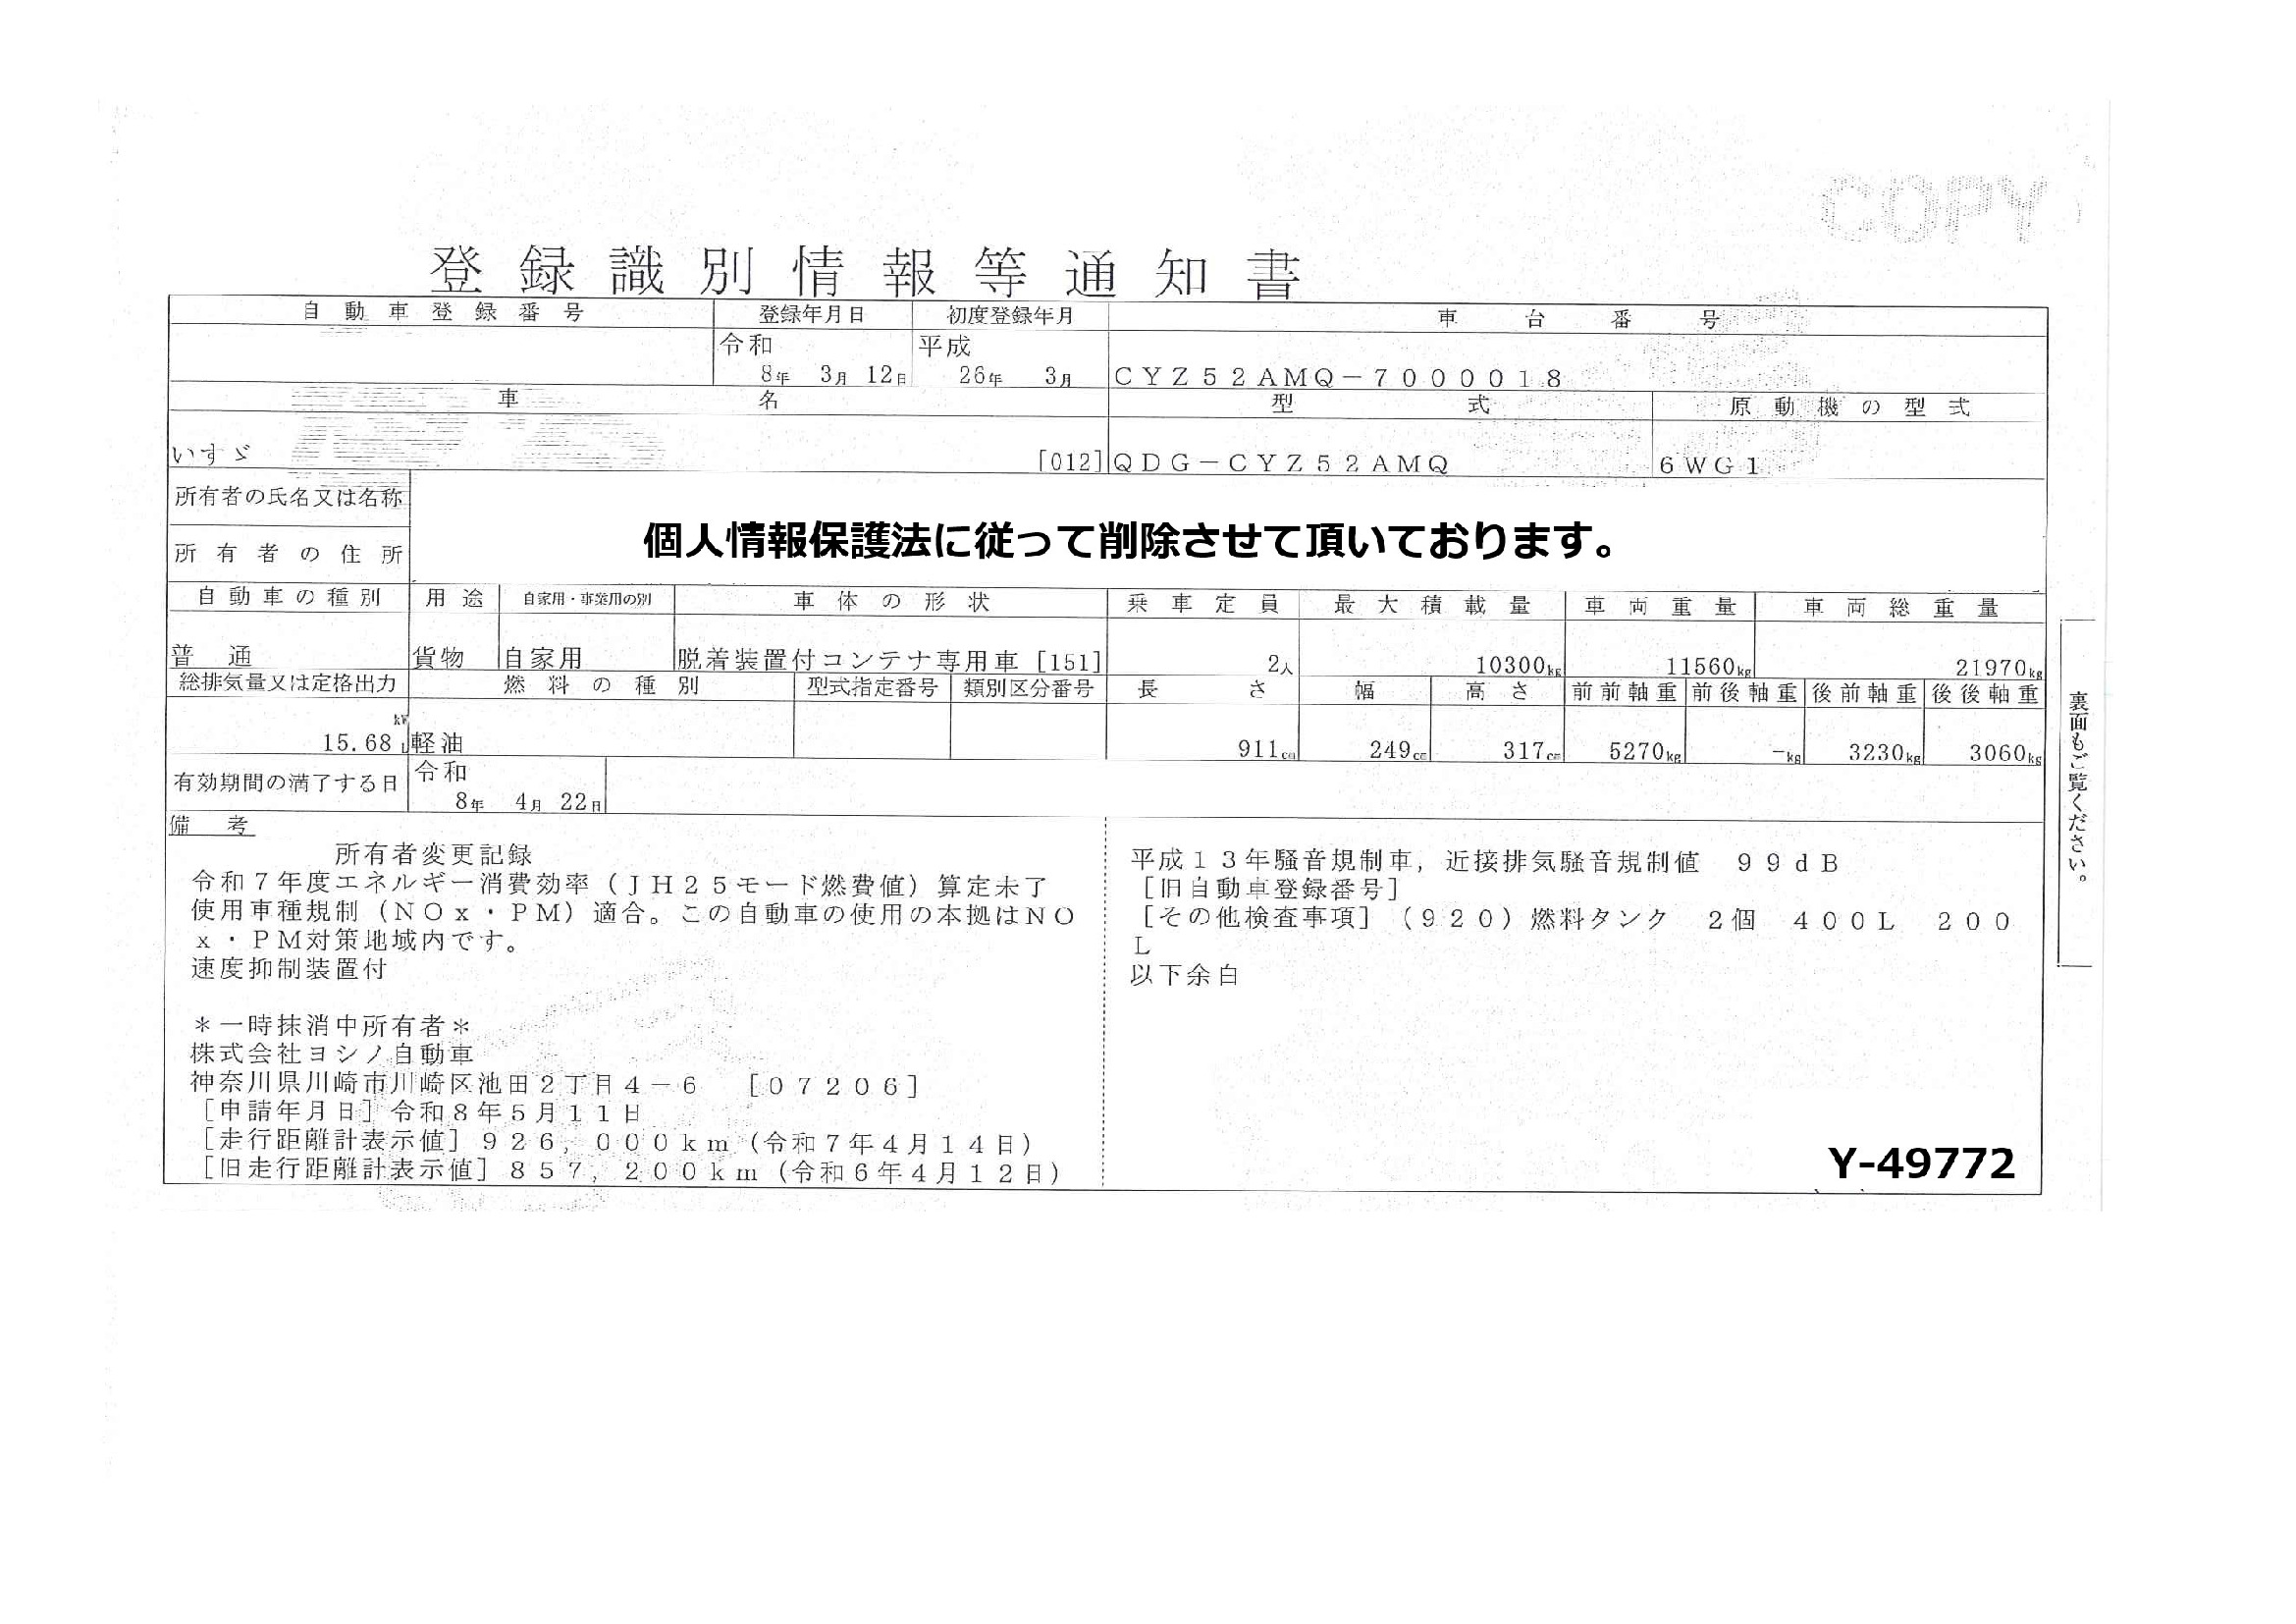 COPY
登録識別情報等通知書
自動車登録番号 登録年月日 初度登録年月 車台番号
令和 平成
8年 3月 12日 26年 3月 CYZ52AMQ-7000018
車名 型式 原動機の型式
いすゞ [012] QDG-CYZ52AMQ 6WG1
所有者の氏名又は名称
個人情報保護法に従って削除させて頂いております。
所有者の住所
自動車の種別 用途 自家用・事業用の別 車体の形状 乗車定員 最大積載量 車両重量 車両総重量
普通 貨物 自家用 脱着装置付コンテナ専用車 [151] 2人 10300kg 11560kg 21970kg
総排気量又は定格出力 燃料の種別 型式指定番号 類別区分番号 長さ 幅 高さ 前前軸重 前後軸重 後前軸重 後後軸重
kW
15.68 L 軽油 911cm 249cm 317cm 5270kg -kg 3230kg 3060kg
有効期間の満了する日 令和
8年 4月 22日
備考
所有者変更記録
令和7年度エネルギー消費効率(JH25モード燃費値)算定未了
使用車種規制(NOx・PM)適合。この自動車の使用の本拠はNO
x・PM対策地域内です。
速度抑制装置付
*一時抹消中所有者*
株式会社ヨシノ自動車
神奈川県川崎市川崎区池田2丁目4-6 [07206]
[申請年月日]令和8年5月11日
[走行距離計表示値]926,000km(令和7年4月14日)
[旧走行距離計表示値]857,200km(令和6年4月12日)
平成13年騒音規制車,近接排気騒音規制値 99dB
[旧自動車登録番号]
[その他検査事項](920)燃料タンク 2個 400L 200
L
以下余白
Y-49772
裏面もご覧ください。